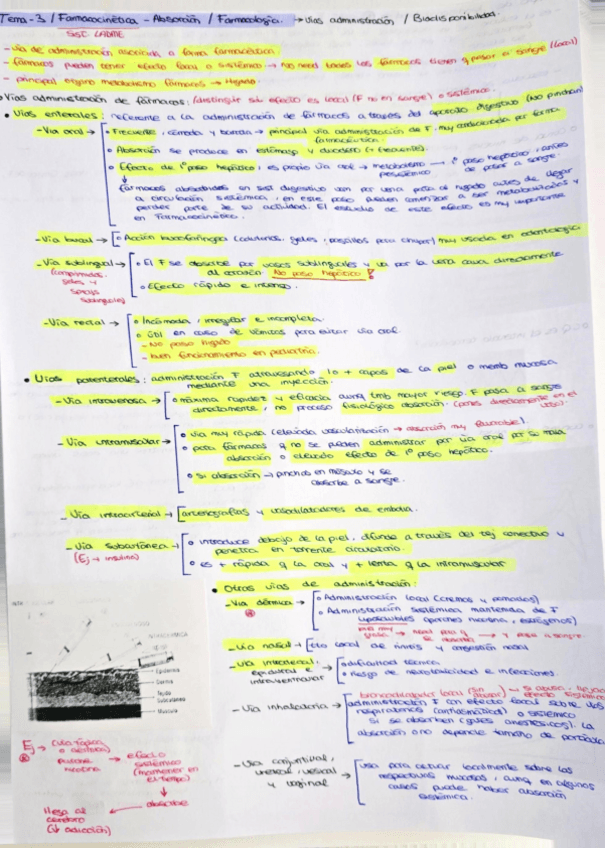 Tema-3 / Farmacocinética - Absorción / Farmacología. → Vías administración / Biodisponibilidad.
SIST. LADME
- vía de administración asociada a forma farmacéutica
- fármacos pueden tener efecto local o sistémico → No necesi todos los fármacos tienen q pasar a sangre (local)
- principal órgano metabolismo fármacos → Hígado.
Vías administración de fármacos: (distinguir si efecto es local (F no en sangre) o sistémico.
• Vías enterales: referente a la administración de fármacos a través del aparato digestivo (No pinchan)
- Vía oral → Frecuente, cómoda y barata → principal vía administración de F, muy condicionada por forma farmacéutica.
Absorción se produce en estómago y duodeno (+ frecuente).
Efecto de 1º paso hepático, es propio vía oral → metabolismo → 1º paso hepático, antes de pasar a sangre
presistémico
↓
fármacos absorbidos en sist digestivo van por vena porta al hígado antes de llegar
a circulación sistémica, en este paso pueden comenzar a ser metabolizados y
perder parte de su actividad. El estudio de este efecto es muy importante
en Farmacocinética.
- Vía bucal → Acción bucofaríngea (colutorios, geles, pastillas para chupar) muy usada en odontología
- Vía sublingual → El F se absorbe por vasos sublinguales y va por la vena cava directamente
al corazón. No paso hepático!
(comprimidos, geles y sprays sublinguales)
Efecto rápido e intenso.
- Vía rectal → Incómoda, irregular e incompleta.
útil en caso de vómitos para evitar vía oral
- No pasa hígado
- buen funcionamiento en pediatría.
• Vías parenterales: administración F atravesando 1 o + capas de la piel o memb mucosa
mediante una inyección.
- Vía intravenosa → máxima rapidez y eficacia aunq tmb mayor riesgo. F pasa a sangre
directamente, no proceso fisiológico absorción. (pones directamente en el vaso).
- Vía intramuscular → vía muy rápida (elevada vascularización → absorción muy favorable).
para fármacos q no se pueden administrar por vía oral por su mala
absorción o elevado efecto de 1º paso hepático.
Sí absorción → pinchas en músculo y se
absorbe a sangre.
- Vía intraarterial → arteriografías y vasodilatadores de embolia.
- Vía subcutánea → introduce debajo de la piel, difunde a través del tej conectivo y
penetra en torrente circulatorio.
(Ej → insulina)
es + rápida q la oral y + lenta q la intramuscular
• Otras vías de administración:
- Vía dérmica → Administración local (cremas y pomadas)
Administración sistémica mantenida de F
liposolubles (parches nicotina, estrógenos)
- Vía nasal → local de rinitis y congestión nasal
- Vía intratecal, epidural e intraventricular → dificultad técnica.
riesgo de neurotoxicidad e infecciones.
broncodilatador local
- Vía inhalatoria → administración F con efecto local sobre vías
respiratorias (antiasmáticos) o sistémico
si se absorben (gases anestésicos). La
absorción depende tamaño de partícula
- Vía conjuntival, uretral, vesical y vaginal → usa para actuar localmente sobre las
respectivas mucosas, aunq en algunos
casos puede haber absorción
sistémica.
INTRADÉRMICA
Epidermis
Dermis
Tejido
Subcutáneo
Músculo
Ej → (vía tópica o dérmica) parche nicotina → efecto sistémico (mantener en el tiempo)
absorbe
llega al cerebro (↓ adicción)